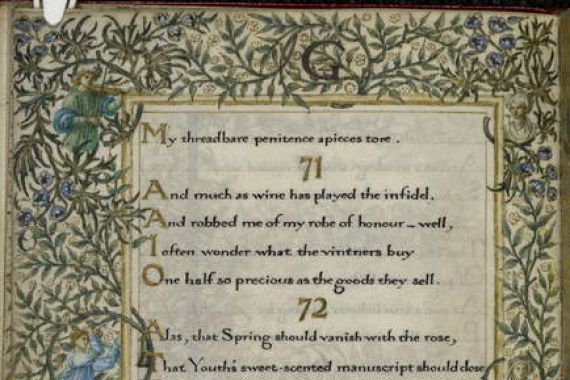 G
My threadbare penitence apieces tore.
71
And much as wine has played the infidel,
And robbed me of my robe of honour – well,
I often wonder what the vintners buy
One half so precious as the goods they sell.
72
Alas, that Spring should vanish with the rose,
That Youth's sweet-scented manuscript should close